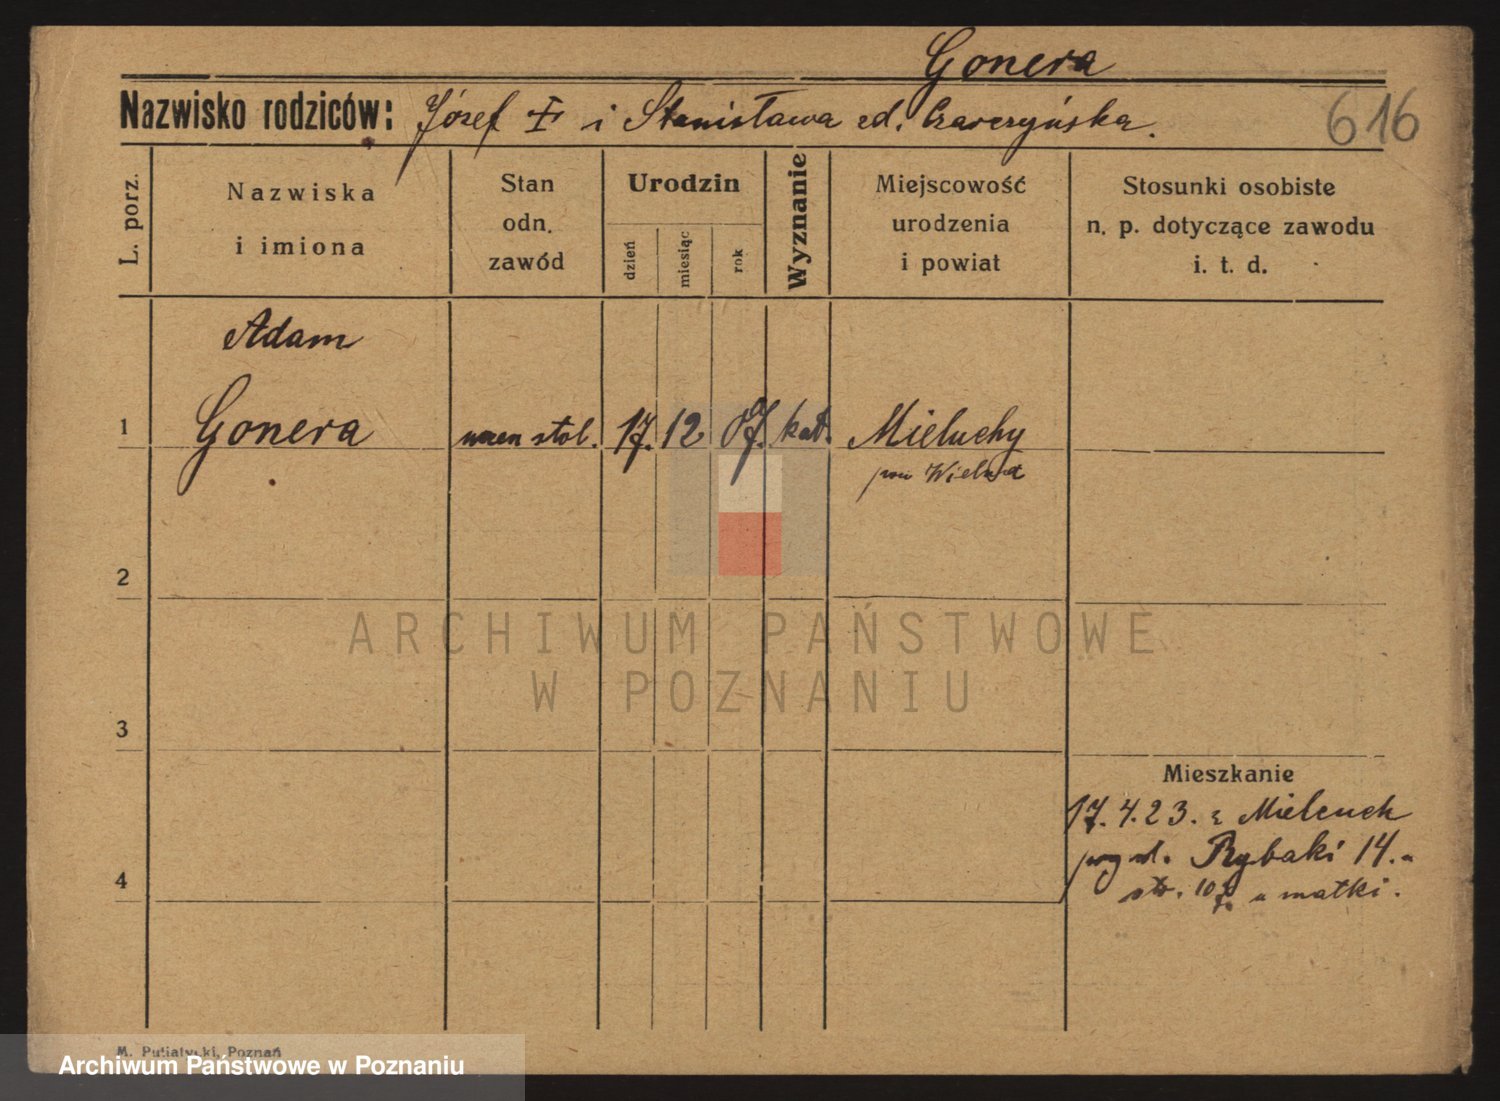 Gonera
Nazwisko rodziców: Józef i Stanisława
616
L. porz.
Nazwiska
i imiona
Stan
odn.
zawód
Urodzin
dzień
miesiąc
rok
Wyznanie
Miejscowość
urodzenia
i powiat
Stosunki osobiste
n. p. dotyczące zawodu
i. t. d.
Adam
1 Gonera uczen stol. 17. 12 07. kat. Mieluchy
2
3
4
ARCHIWUM PAŃSTWOWE
W POZNANIU
Mieszkanie
17. 4. 23. z
Rybaki 14.
u matki.
M. Putiatycki, Poznań
Archiwum Państwowe w Poznaniu